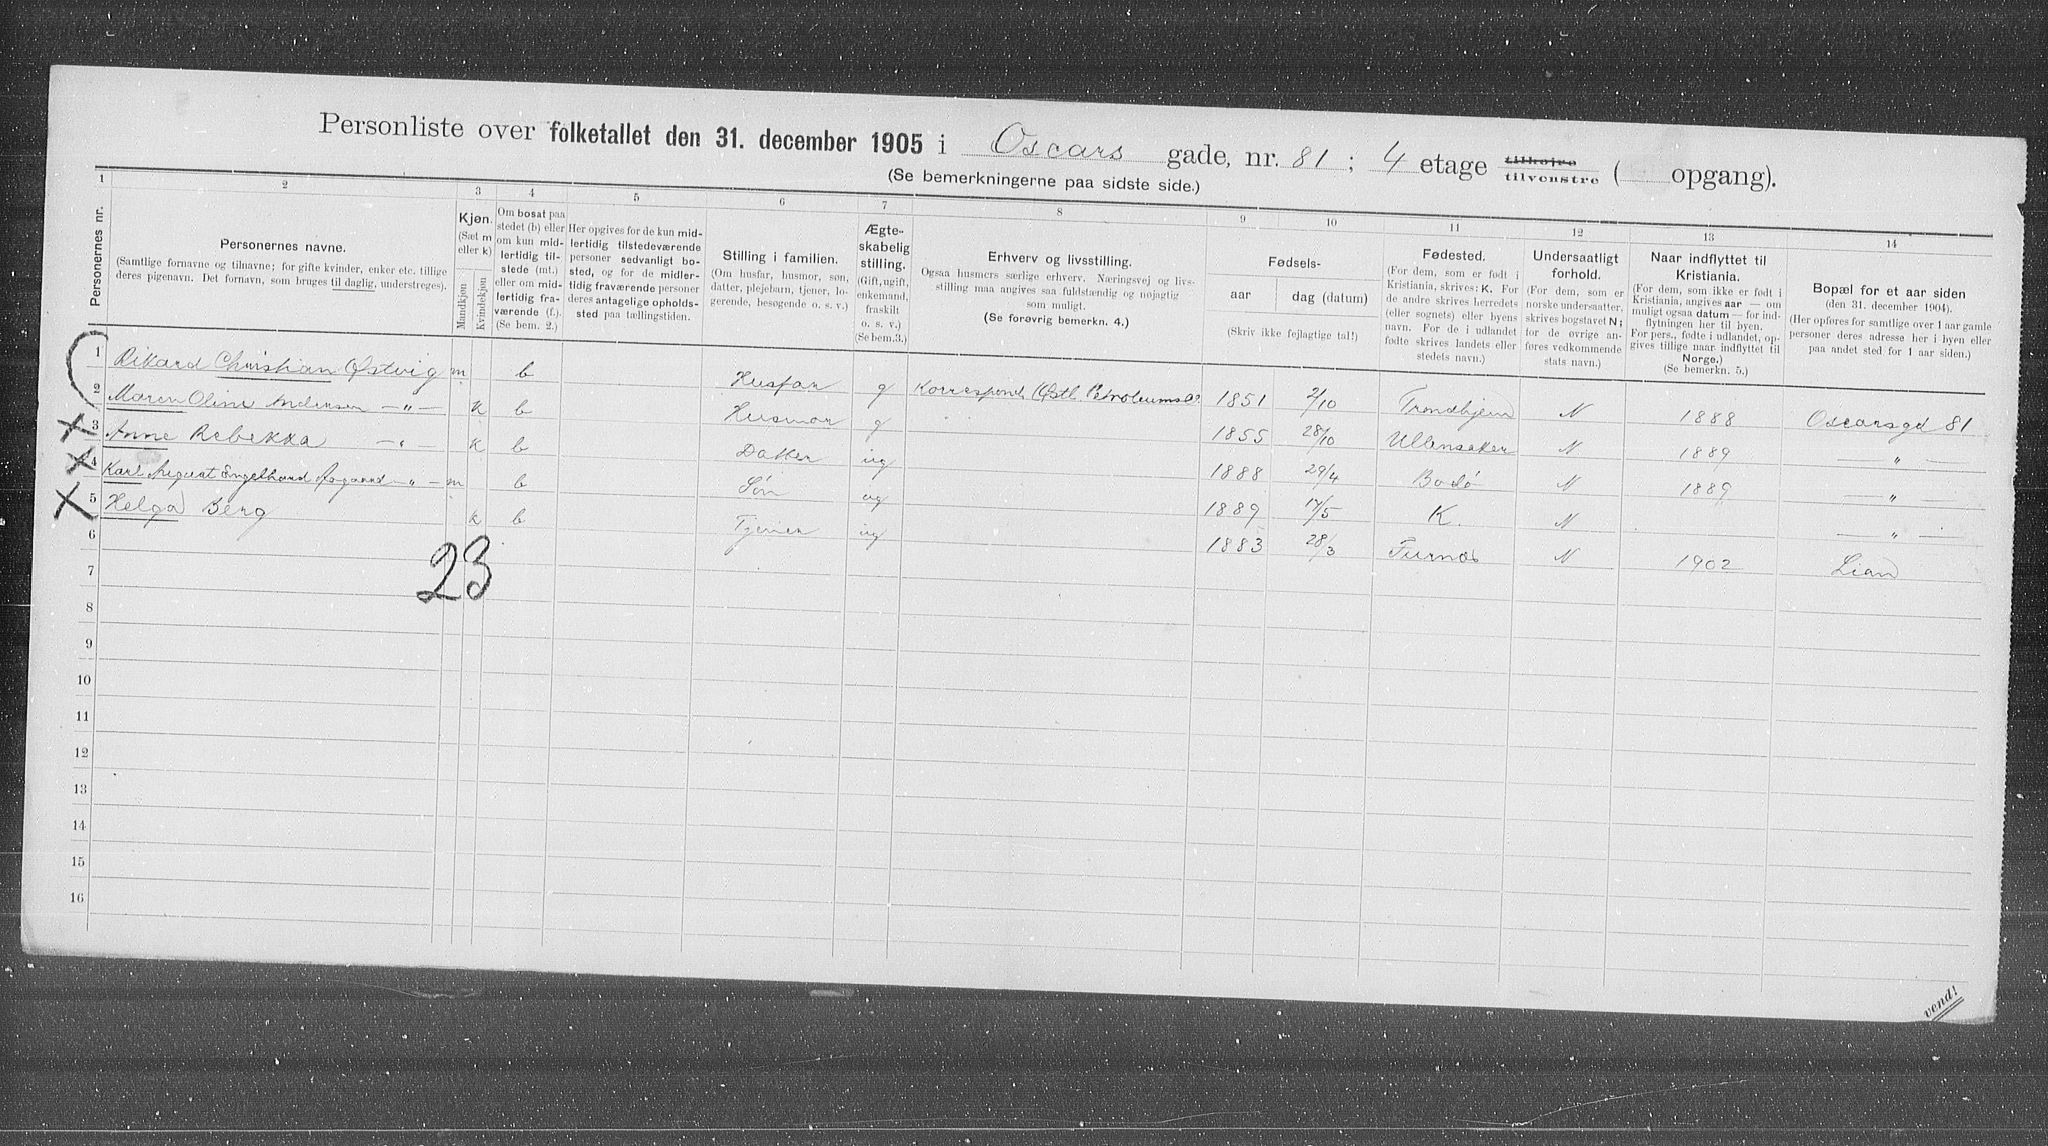 Personliste over folketallet den 31. december 1905 i Oscars gade, nr. 81 ; 4 etage tilhøjre tilvenstre ( opgang).
(Se bemerkningerne paa sidste side.)
1 2 3 4 5 6 7 8 9 10 11 12 13 14
Personernes nr.
Personernes navne.
(Samtlige fornavne og tilnavne; for gifte kvinder, enker etc. tillige
deres pigenavn. Det fornavn, som bruges til daglig, understreges).
Kjøn.
(Sæt m
eller k)
Mandkjøn
Kvindekjøn
Om bosat paa
stedet (b) eller
om kun mid-
lertidig til-
stede (mt.)
eller om mid-
lertidig fra-
værende (f.).
(Se bem. 2.)
Her opgives for de kun mid-
lertidig tilstedeværende
personer sedvanligt bo-
sted, og for de midler-
tidig fraværende personer
deres antagelige opholds-
sted paa tællingstiden.
Stilling i familien.
(Om husfar, husmor, søn,
datter, plejebarn, tjener, lo-
gerende, besøgende o. s. v.)
Ægte-
skabelig
stilling.
(Gift, ugift,
enkemand,
fraskilt
o. s. v.)
(Se bem.3.)
Erhverv og livsstilling.
Ogsaa husmors særlige erhverv. Næringsvej og livs-
stilling maa angives saa fuldstændig og nøjagtig
som muligt.
(Se forøvrig bemerkn. 4.)
Fødsels-
aar dag (datum)
(Skriv ikke fejlagtige tal!)
Fødested.
(For dem, som er født i
Kristiania, skrives: K. For
de andre skrives herredets
(eller sognets) eller byens
navn. For de i udlandet
fødte skrives landets eller
stedets navn.)
Undersaatligt
forhold.
(For dem, som er
norske undersaatter,
skrives bogstavet N;
for de øvrige an-
føres vedkommende
stats navn.)
Naar indflyttet til
Kristiania.
(For dem, som ikke er født i
Kristiania, angives aar — om
muligt ogsaa datum — for ind-
flytningen her til byen.
For pers., fødte i udlandet, op-
gives tillige naar indflyttet til
Norge.)
(Se bemerkn. 5.)
Bopæl for et aar siden
(den 31. december 1904).
(Her opføres for samtlige over 1 aar gamle
personer deres adresse her i byen eller
paa andet sted for 1 aar siden.)
1 Rikard Christian Østvig m b Husfar g Korrespond. Østl. Petroleumsco. 1851 2/10 Trondhjem N 1888 Oscarsgd 81
2 Maren Oline Andersen —„— k b Husmor g 1855 28/10 Ullensaker N 1889 —„—
3 Anne Rebekka —„— k b Datter ug 1888 29/4 Bodø N 1889 —„—
4 Karl August Engelhard —„— m b Søn ug 1889 17/5 K. N —„—
5 Helga Berg k b Tjener ug 1883 28/3 Furnes N 1902 Lian
6
23
7
8
9
10
11
12
13
14
15
16
vend!